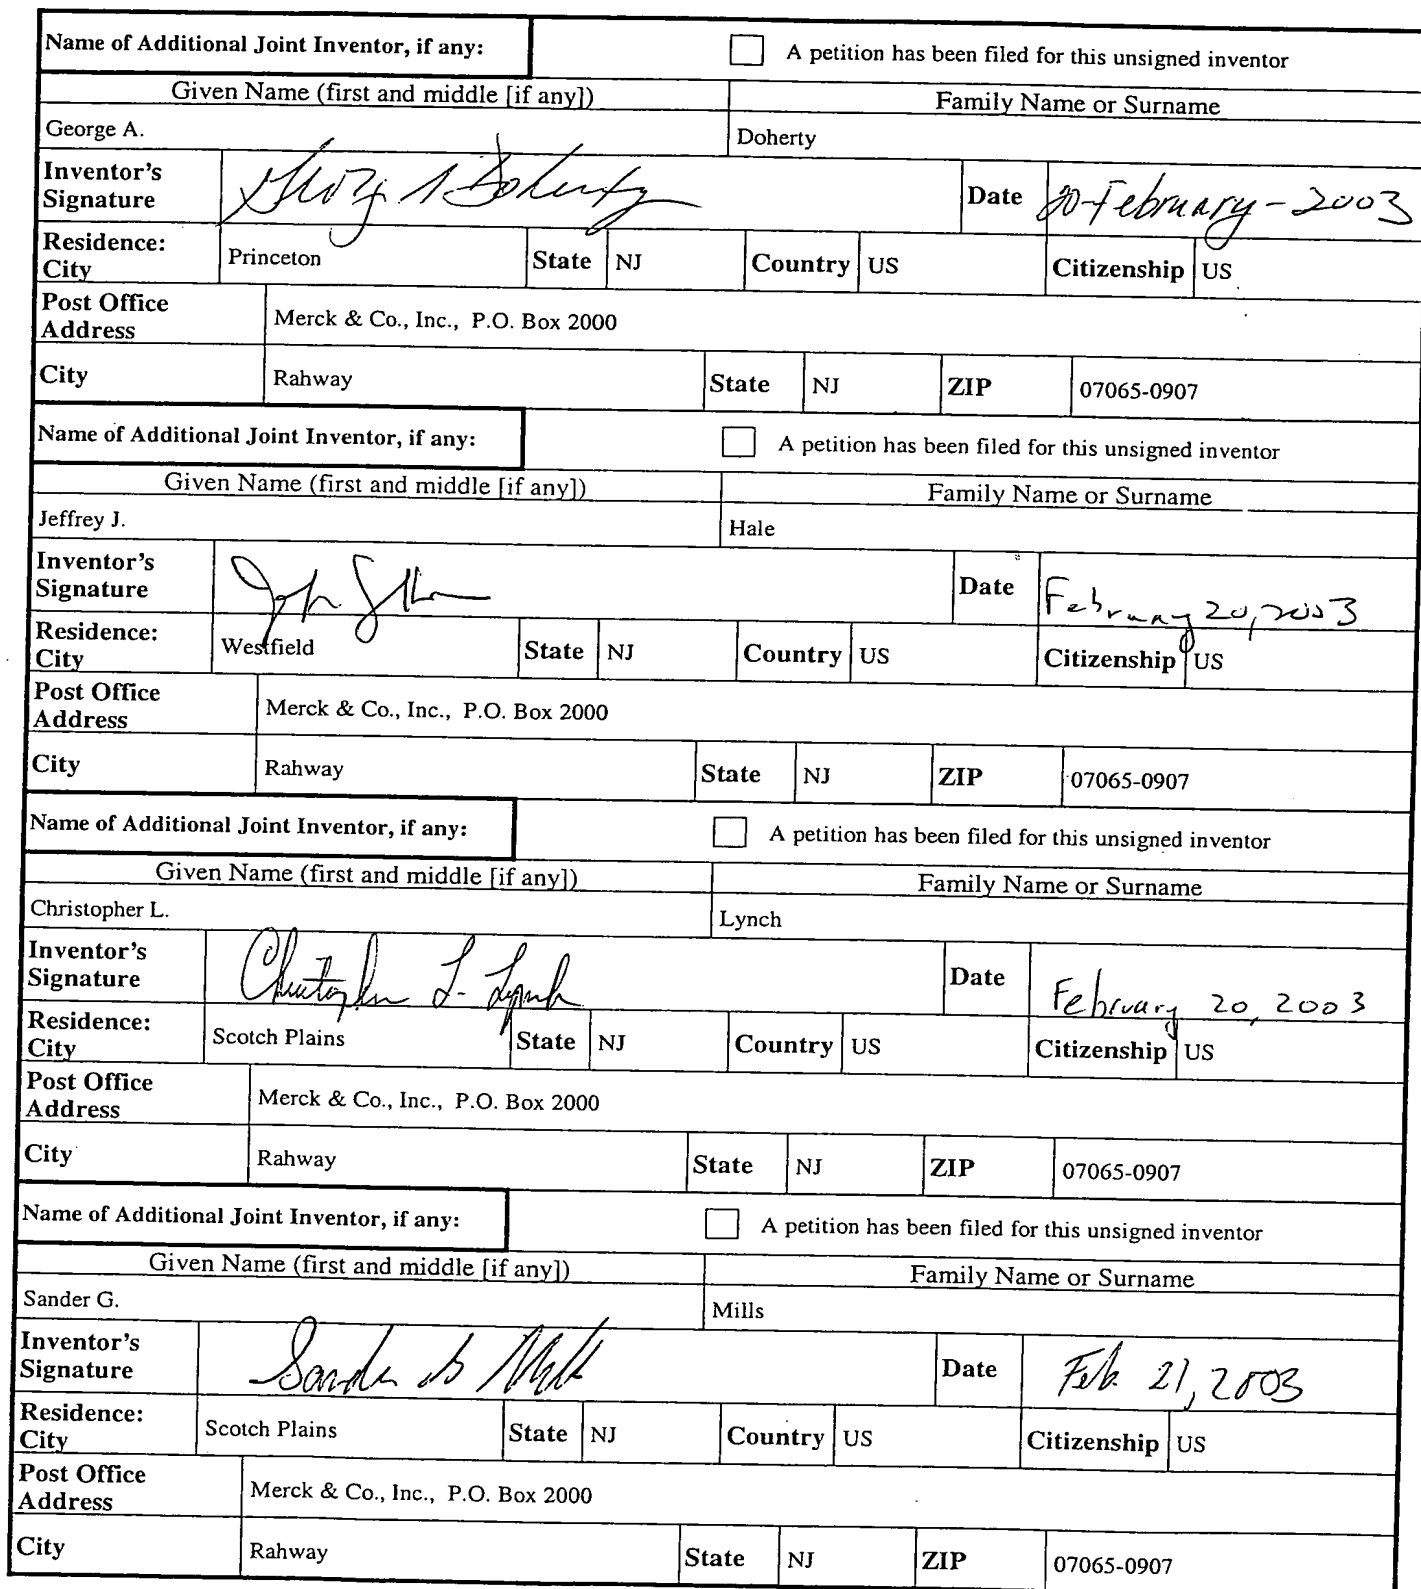 Name of Additional Joint Inventor, if any: A petition has been filed for this unsigned inventor
Given Name (first and middle [if any]) Family Name or Surname
George A. Doherty
Inventor's Signature George A Doherty Date 20-February-2003
Residence: City Princeton State NJ Country US Citizenship US
Post Office Address Merck & Co., Inc., P.O. Box 2000
City Rahway State NJ ZIP 07065-0907
Name of Additional Joint Inventor, if any: A petition has been filed for this unsigned inventor
Given Name (first and middle [if any]) Family Name or Surname
Jeffrey J. Hale
Inventor's Signature Date February 20, 2003
Residence: City Westfield State NJ Country US Citizenship US
Post Office Address Merck & Co., Inc., P.O. Box 2000
City Rahway State NJ ZIP 07065-0907
Name of Additional Joint Inventor, if any: A petition has been filed for this unsigned inventor
Given Name (first and middle [if any]) Family Name or Surname
Christopher L. Lynch
Inventor's Signature Christopher L. Lynch Date February 20, 2003
Residence: City Scotch Plains State NJ Country US Citizenship US
Post Office Address Merck & Co., Inc., P.O. Box 2000
City Rahway State NJ ZIP 07065-0907
Name of Additional Joint Inventor, if any: A petition has been filed for this unsigned inventor
Given Name (first and middle [if any]) Family Name or Surname
Sander G. Mills
Inventor's Signature Sander G Mills Date Feb. 21, 2003
Residence: City Scotch Plains State NJ Country US Citizenship US
Post Office Address Merck & Co., Inc., P.O. Box 2000
City Rahway State NJ ZIP 07065-0907